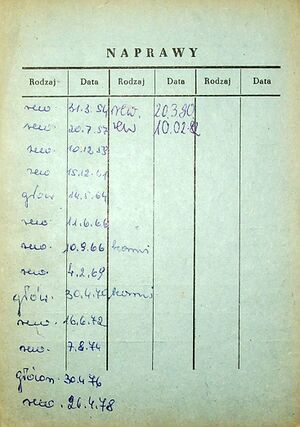 NAPRAWY
Rodzaj Data Rodzaj Data Rodzaj Data
rew. 31.3.54 rew. 20.3.80
rew. 20.7.57 rew 10.02.82
rew. 10.12.59
rew. 15.12.61
głów. 14.5.64
rew. 11.6.66
rew. 10.9.66
rew. 4.2.69
głów. 30.4.70
rew. 16.6.72
rew. 7.8.74
główn. 30.4.76
rew. 26.4.78